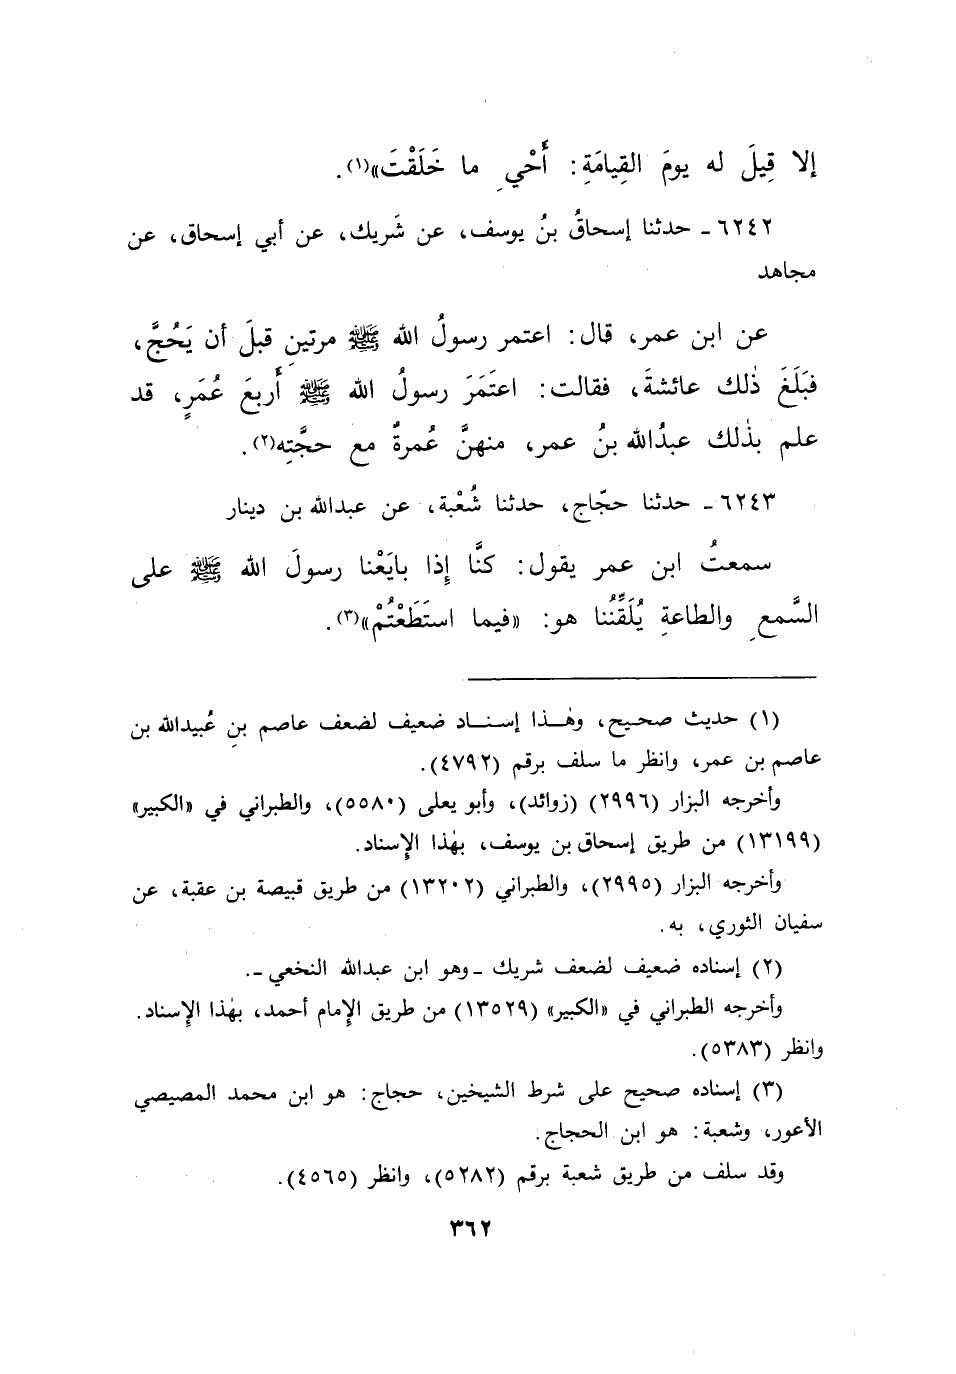 إلا قِيلَ له يومَ القِيامَةِ: أَحْيِ ما خَلَقْتَ»(١).
٦٢٤٢ ـ حدثنا إسحاقُ بنُ يوسف، عن شَريك، عن أبي إسحاق، عن
مجاهد
عن ابن عمر، قال: اعتمر رسولُ الله ﷺ مرتينِ قبلَ أن يَحُجَّ،
فبَلَغَ ذٰلك عائشةَ، فقالت: اعتَمَرَ رسولُ الله ﷺ أَربعَ عُمَرٍ، قد
علم بذٰلك عبدُالله بنُ عمر، منهنَّ عُمرةٌ مع حجَّتِه(٢).
٦٢٤٣ ـ حدثنا حجّاج، حدثنا شُعْبة، عن عبدالله بن دينار
سمعتُ ابن عمر يقول: كنَّا إِذا بايَعْنا رسولَ الله ﷺ على
السَّمعِ والطاعةِ يُلَقِّنُنا هو: «فيما استَطَعْتُمْ»(٣).
(١) حديث صحيح، وهٰذا إسناد ضعيف لضعف عاصم بنِ عُبيدالله بن
عاصم بن عمر، وانظر ما سلف برقم (٤٧٩٢).
وأخرجه البزار (٢٩٩٦) (زوائد)، وأبو يعلى (٥٥٨٠)، والطبراني في «الكبير»
(١٣١٩٩) من طريق إسحاق بن يوسف، بهٰذا الإِسناد.
وأخرجه البزار (٢٩٩٥)، والطبراني (١٣٢٠٢) من طريق قبيصة بن عقبة، عن
سفيان الثوري، به.
(٢) إسناده ضعيف لضعف شريك ـ وهو ابن عبدالله النخعي ـ.
وأخرجه الطبراني في «الكبير» (١٣٥٢٩) من طريق الإِمام أحمد، بهٰذا الإِسناد.
وانظر (٥٣٨٣).
(٣) إسناده صحيح على شرط الشيخين، حجاج: هو ابن محمد المصيصي
الأعور، وشعبة: هو ابن الحجاج.
وقد سلف من طريق شعبة برقم (٥٢٨٢)، وانظر (٤٥٦٥).
٣٦٢